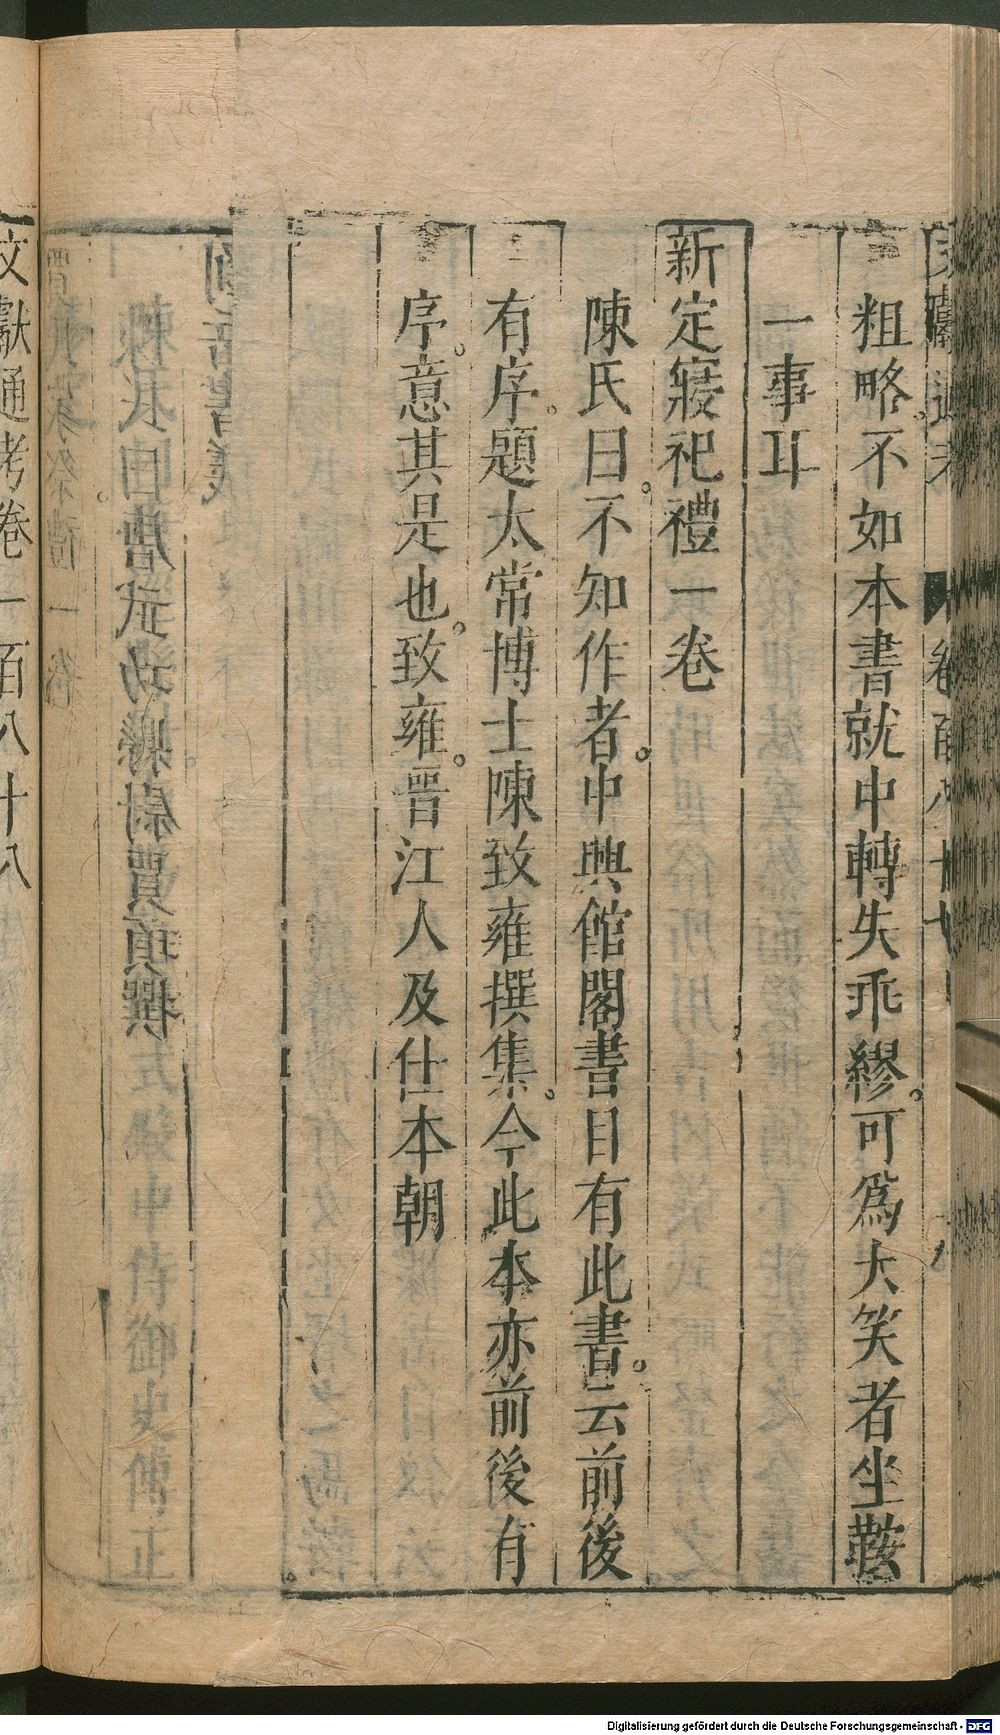 粗略不如本書就中轉失乖繆可爲大笑者坐鞍
一事耳
新定寢祀禮一卷
陳氏曰不知作者中興館閣書目有此書云前後
有序題太常博士陳致雍撰集今此本亦前後有
序意其是也致雍晋江人及仕本朝
文獻通考卷一百八十八
Digitalisierung gefördert durch die Deutsche Forschungsgemeinschaft - DFG